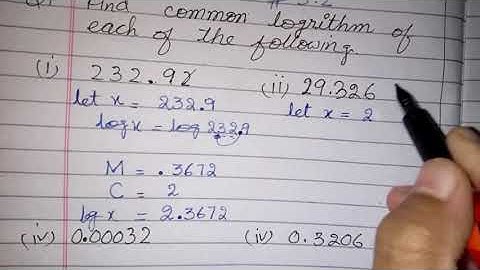 Find common logrithm of
each of the following
(i) 232.92 (ii) 29.326
let x = 232.9 let x = 2
log x = log 232.9
M = .3672
C = 2
log x = 2.3672
(iv) 0.00032 (iv) 0.3206